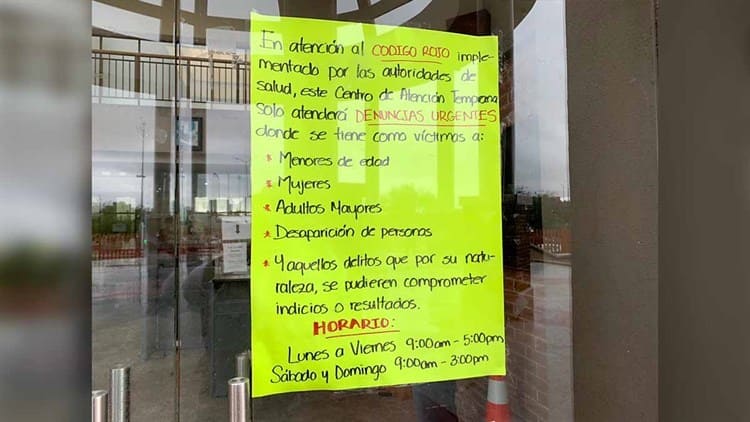 En atención al CODIGO ROJO imple-
mentado por las autoridades de
salud, este Centro de Atención Temprana
solo atenderá DENUNCIAS URGENTES
donde se tiene como víctimas a:
* Menores de edad
* Mujeres
* Adultos Mayores
* Desaparición de personas
* Y aquellos delitos que por su natu-
raleza, se pudieren comprometer
indicios o resultados.
HORARIO:
Lunes a Viernes 9:00am - 5:00pm
Sábado y Domingo 9:00am - 3:00pm